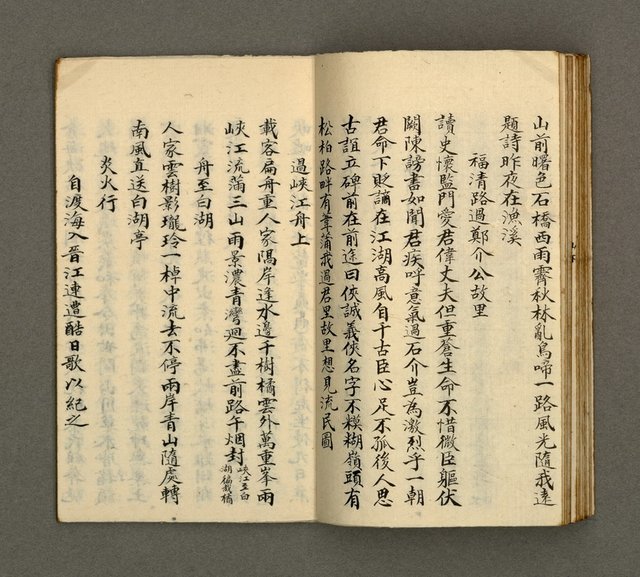 山前曙色石橋西雨霽秋林亂鳥啼一路風光隨我遠
題詩昨夜在漁溪
福清路過鄭介公故里
讀史懷監門愛君偉丈夫但重蒼生命不惜微臣軀伏
闕陳謗書如聞君疾呼意氣過石介豈為激烈乎一朝
君命下貶謫在江湖高風自千古臣心足不孤後人思
古誼立碑前在前途曰俠誠義俠名字不模糊嶺頭有
松柏路畔有葦蒲我過君里故里想見流民圖
過峽江舟上
載客扁舟重人家隔岸逢水邊千樹橘雲外萬重峯雨
峽江流滿三山雨景濃青灣迴不盡前路午烟封峽江至白湖徧栽橘
舟至白湖
人家雲樹影瓏玲一棹中流去不停兩岸青山隨處轉
南風直送白湖亭
炎火行
自渡海入晉江連遭酷日歌以紀之